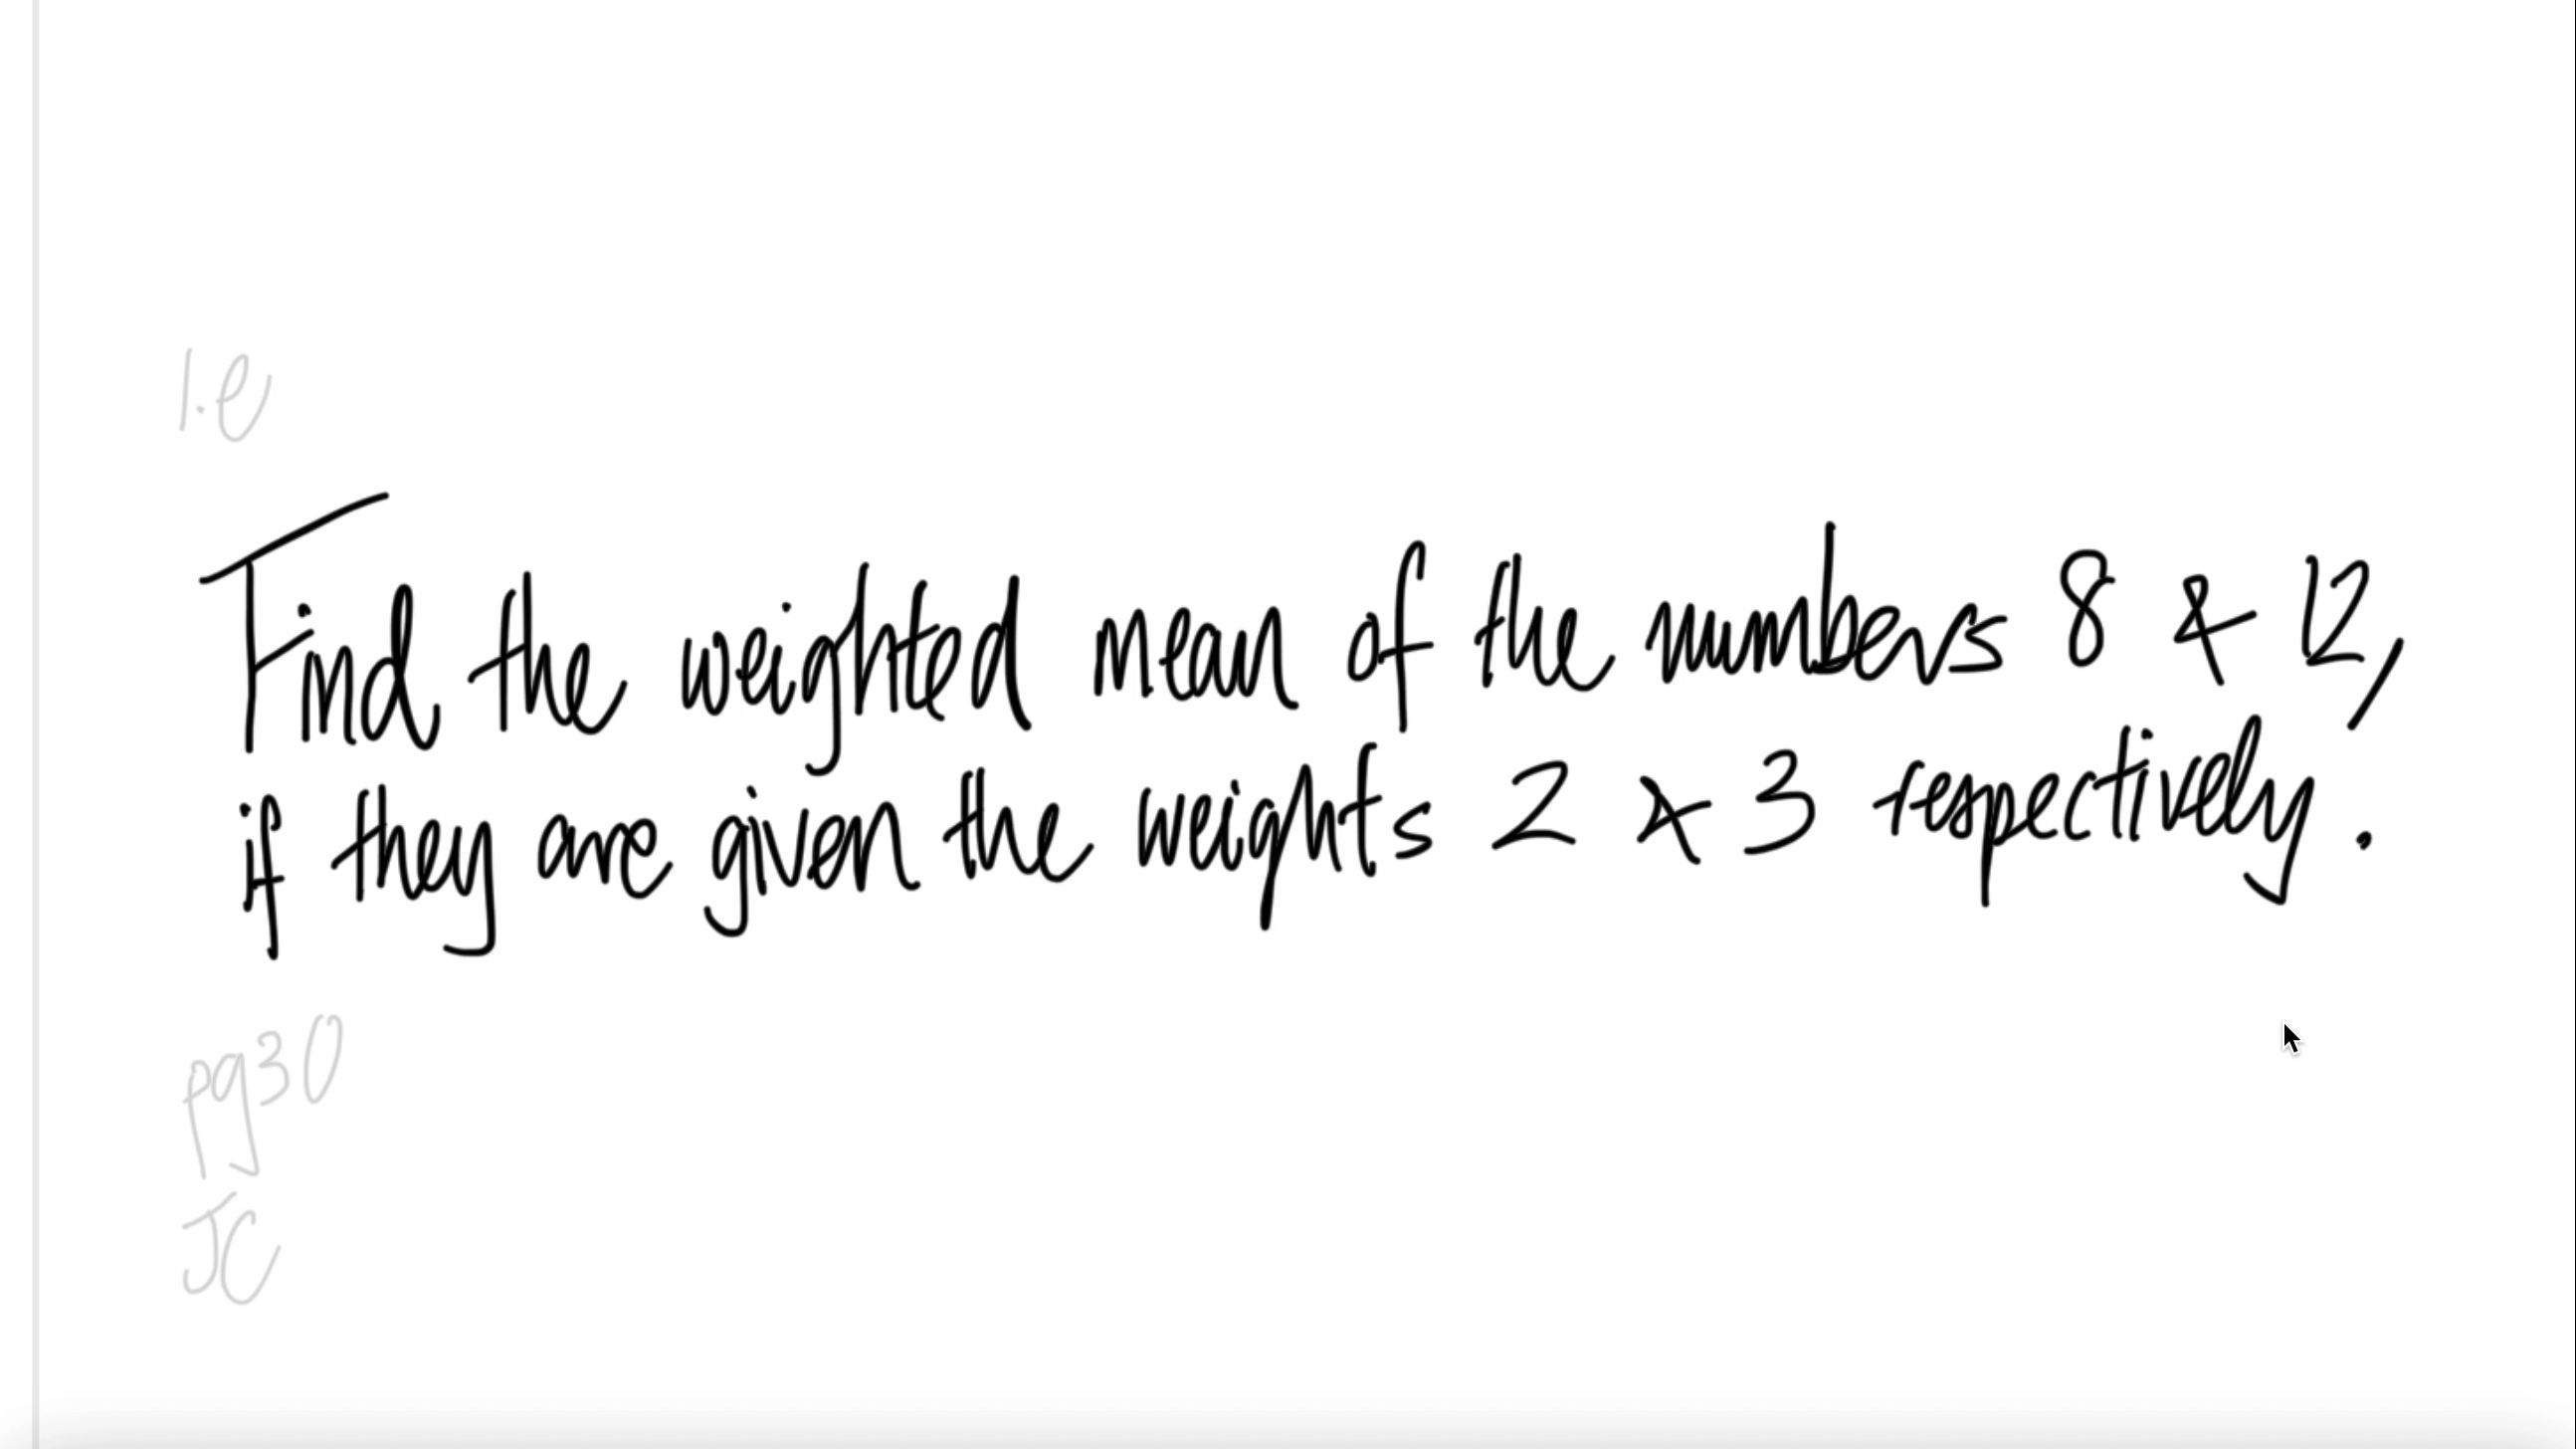 1.e
Find the weighted mean of the numbers 8 & 12,
if they are given the weights 2 & 3 respectively.
pg30
JC